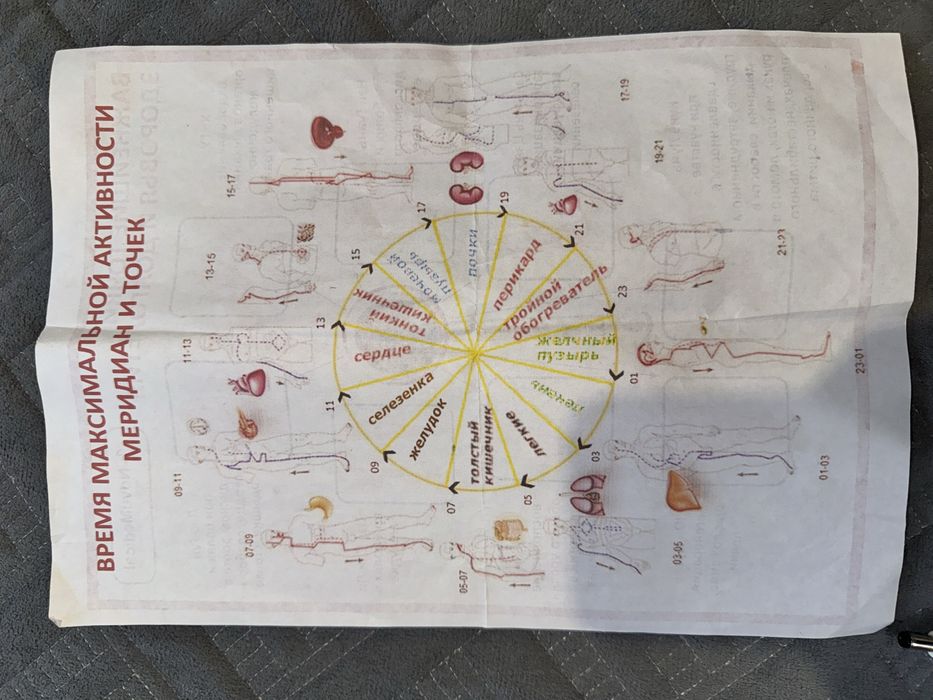 ВРЕМЯ МАКСИМАЛЬНОЙ АКТИВНОСТИ
МЕРИДИАН И ТОЧЕК
15-17
17-19
13-15
19-21
11-13
21-23
09-11
23-01
07-09
01-03
05-07
03-05
17
19
15
21
13
23
11
01
09
03
07
05
почки
перикард
тройной
обогреватель
желчный
пузырь
печень
легкие
толстый
кишечник
желудок
селезенка
сердце
тонкий
кишечник
мочевой
пузырь